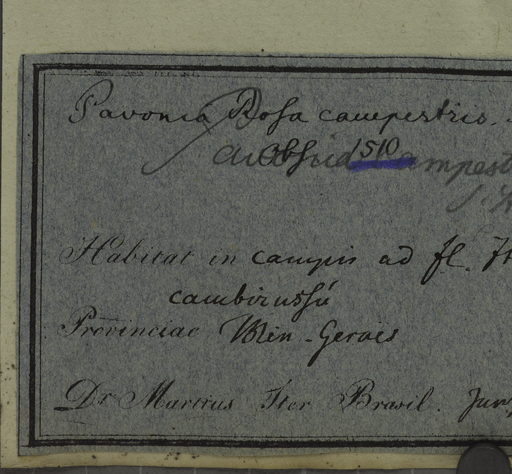 Pavonia Rosa campestris.
Obs. 1510 campest
Habitat in campis ad fl.
Provinciae Min. Gerais
Dr Martius Iter Brasil.